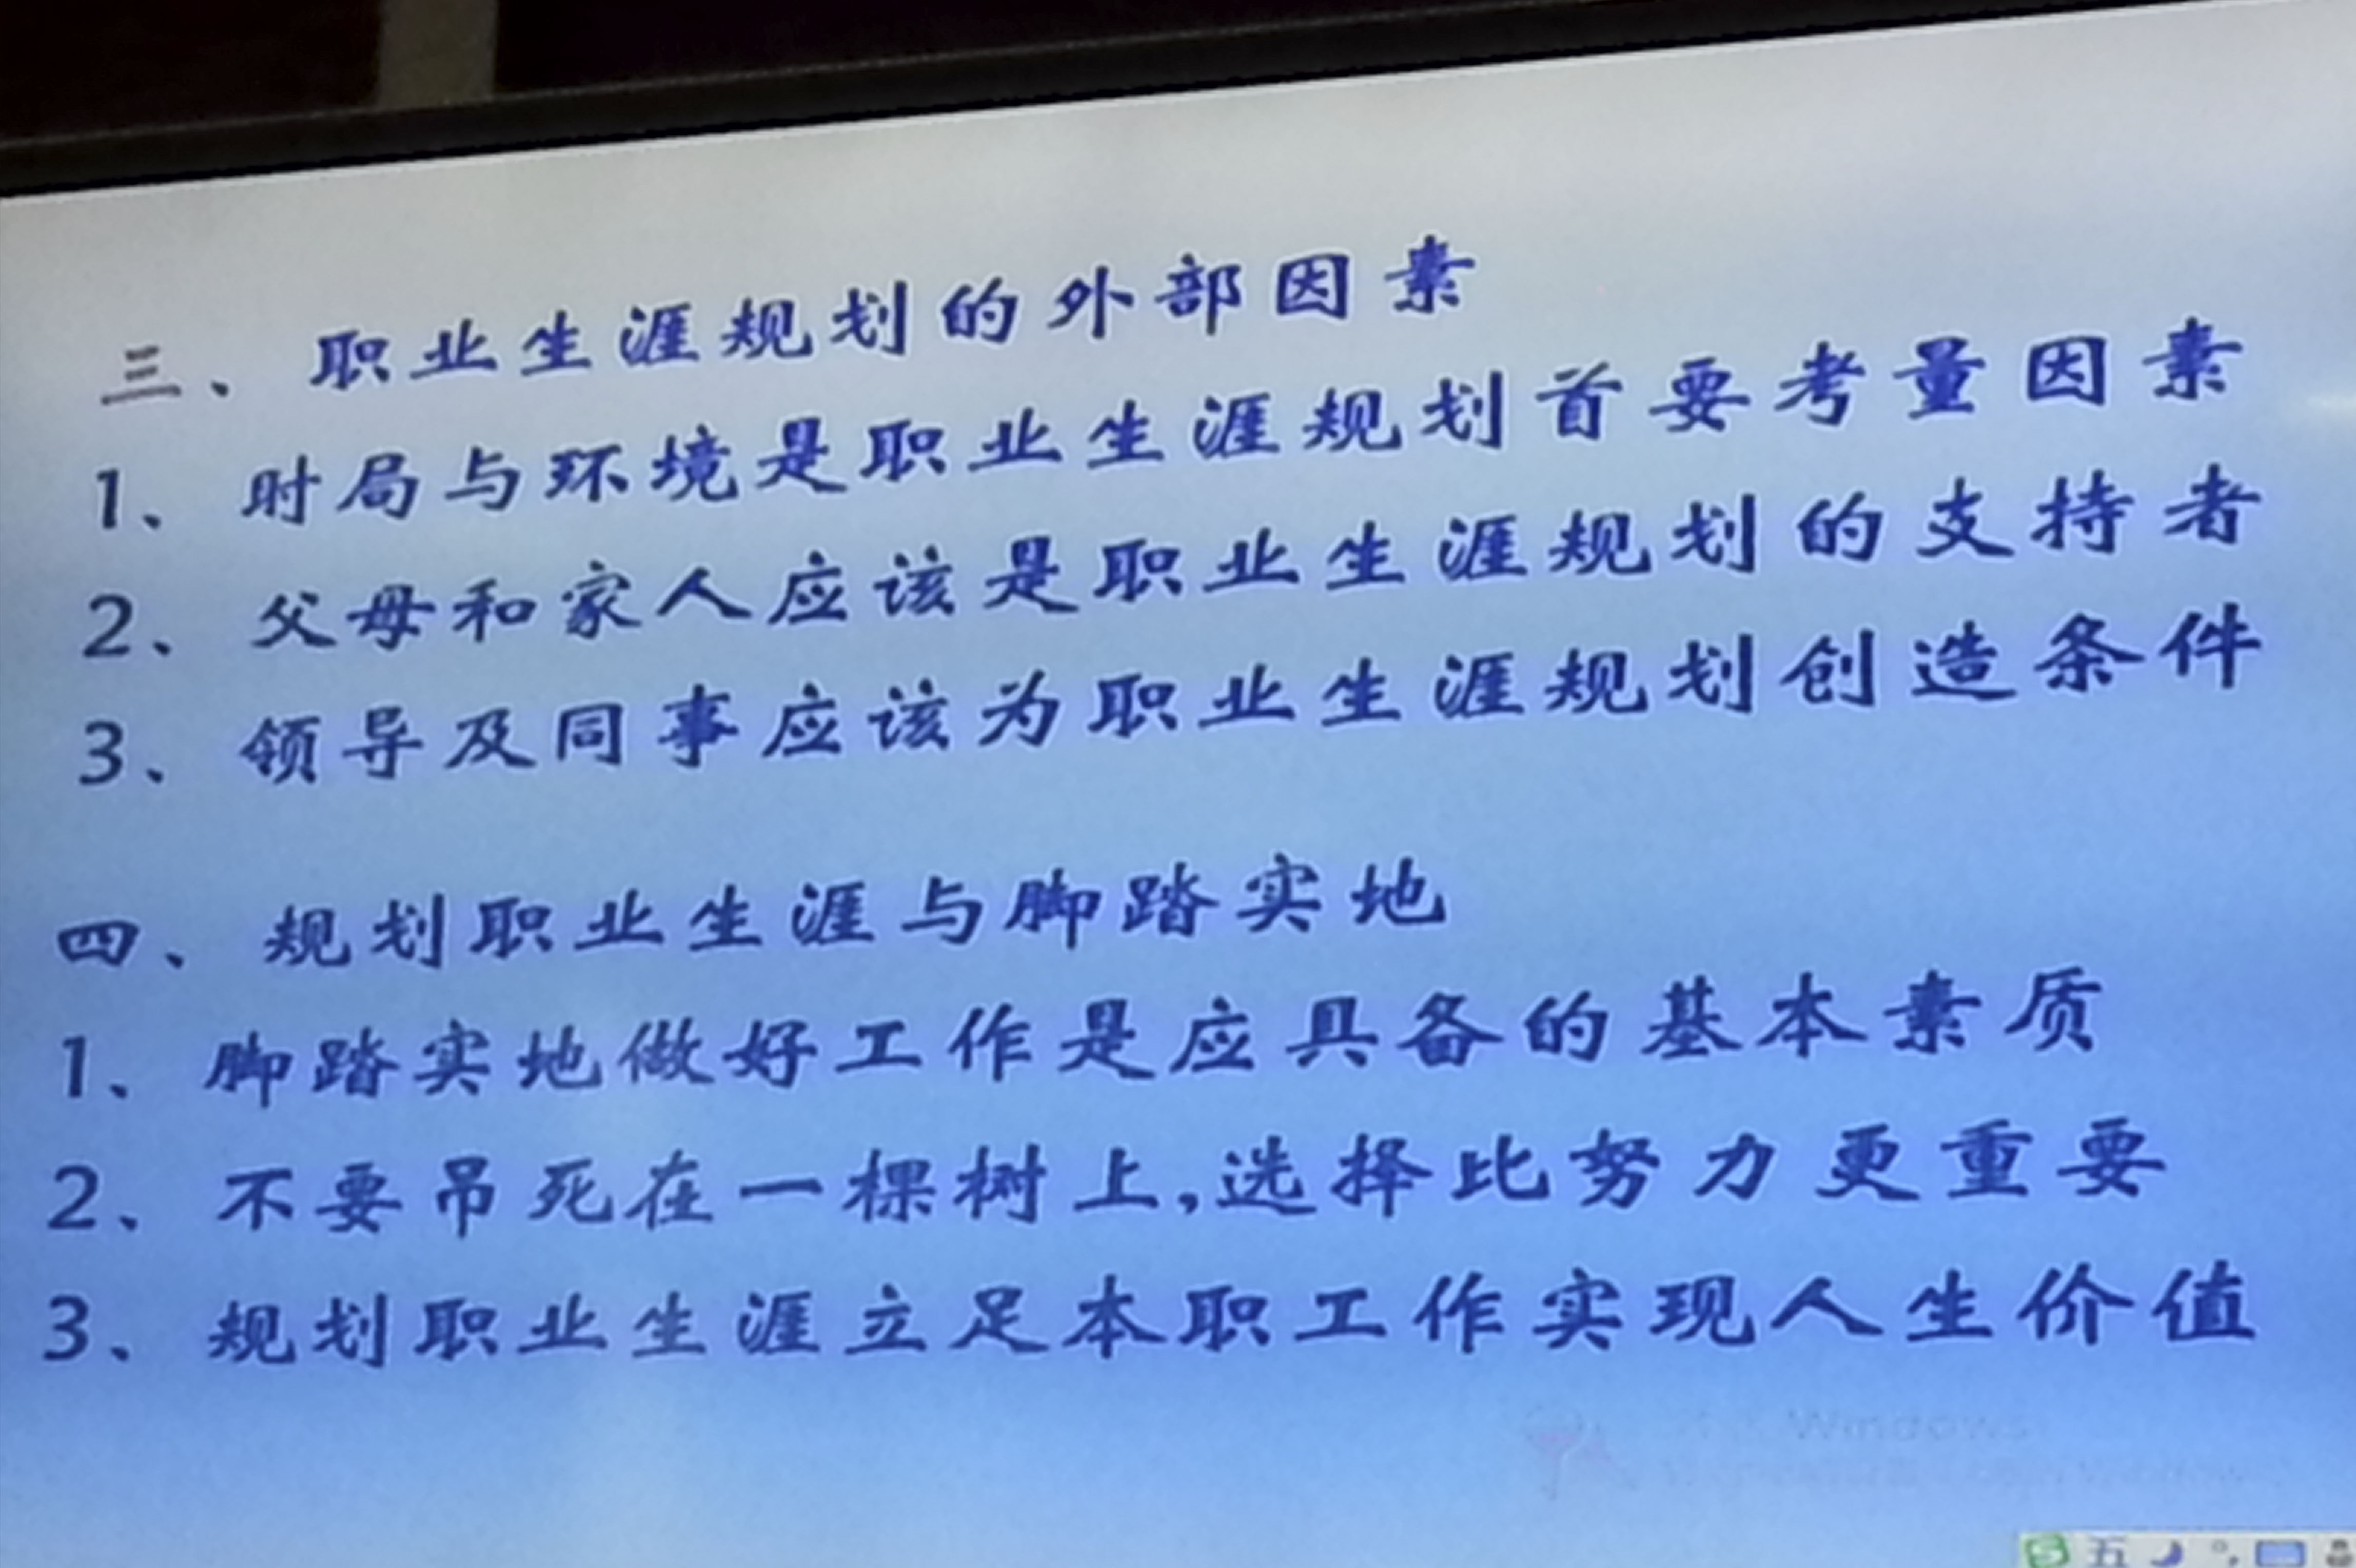 三、职业生涯规划的外部因素
1、时局与环境是职业生涯规划首要考量因素
2、父母和家人应该是职业生涯规划的支持者
3、领导及同事应该为职业生涯规划创造条件
四、规划职业生涯与脚踏实地
1、脚踏实地做好工作是应具备的基本素质
2、不要吊死在一棵树上,选择比努力更重要
3、规划职业生涯立足本职工作实现人生价值
Windows
五